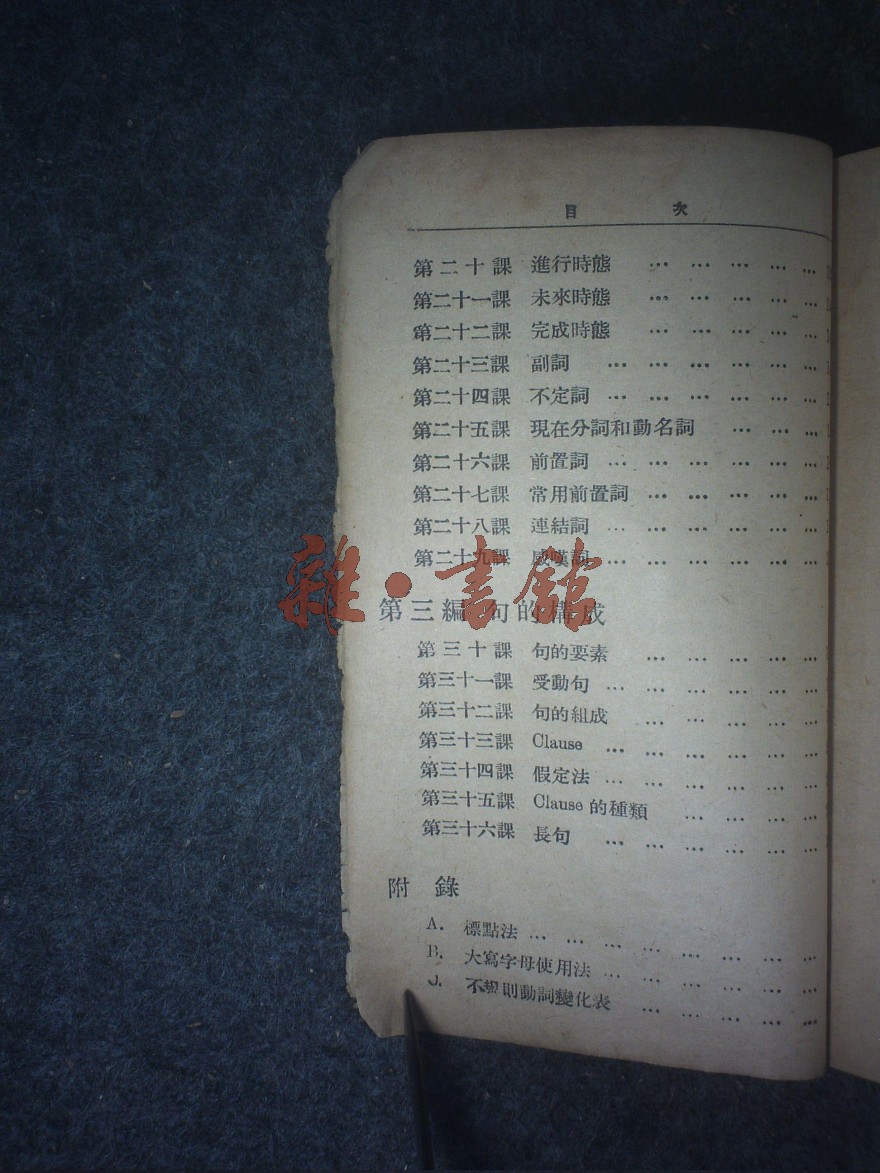 目 次
第二十課 進行時態 … … … … …
第二十一課 未來時態 … … … … …
第二十二課 完成時態 … … … … …
第二十三課 副詞 … … … … … …
第二十四課 不定詞 … … … … … …
第二十五課 現在分詞和動名詞 … … …
第二十六課 前置詞 … … … … … …
第二十七課 常用前置詞 … … … … …
第二十八課 連結詞 … … … … … …
第二十九課 感嘆詞 … … … … … …
雜·書館
第三編 句的構成
第三十課 句的要素 … … … … …
第三十一課 受動句 … … … … … …
第三十二課 句的組成 … … … … …
第三十三課 Clause … … … … … …
第三十四課 假定法 … … … … … …
第三十五課 Clause 的種類 … … … …
第三十六課 長句 … … … … … …
附 錄
A. 標點法 … … … … … … … …
B. 大寫字母使用法 … … … … … …
不規則動詞變化表 … … … … …